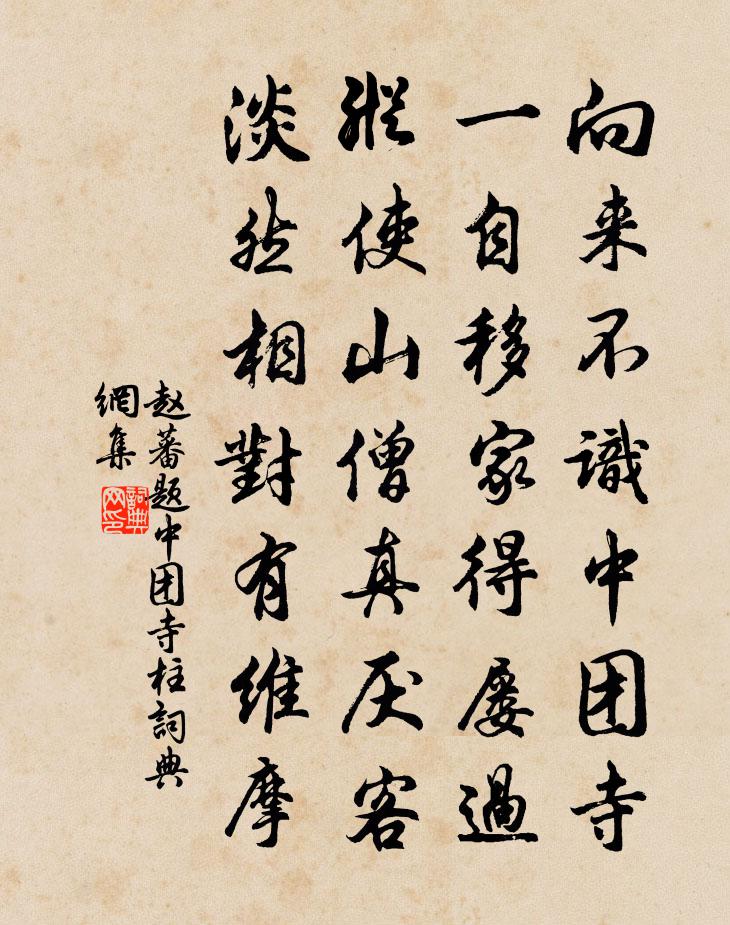 向来不識中团寺
一自移家得屡過
縱使山僧真厌客
淡然相對有维摩
赵蕃题中团寺柱詞典
網集
詞典
网印